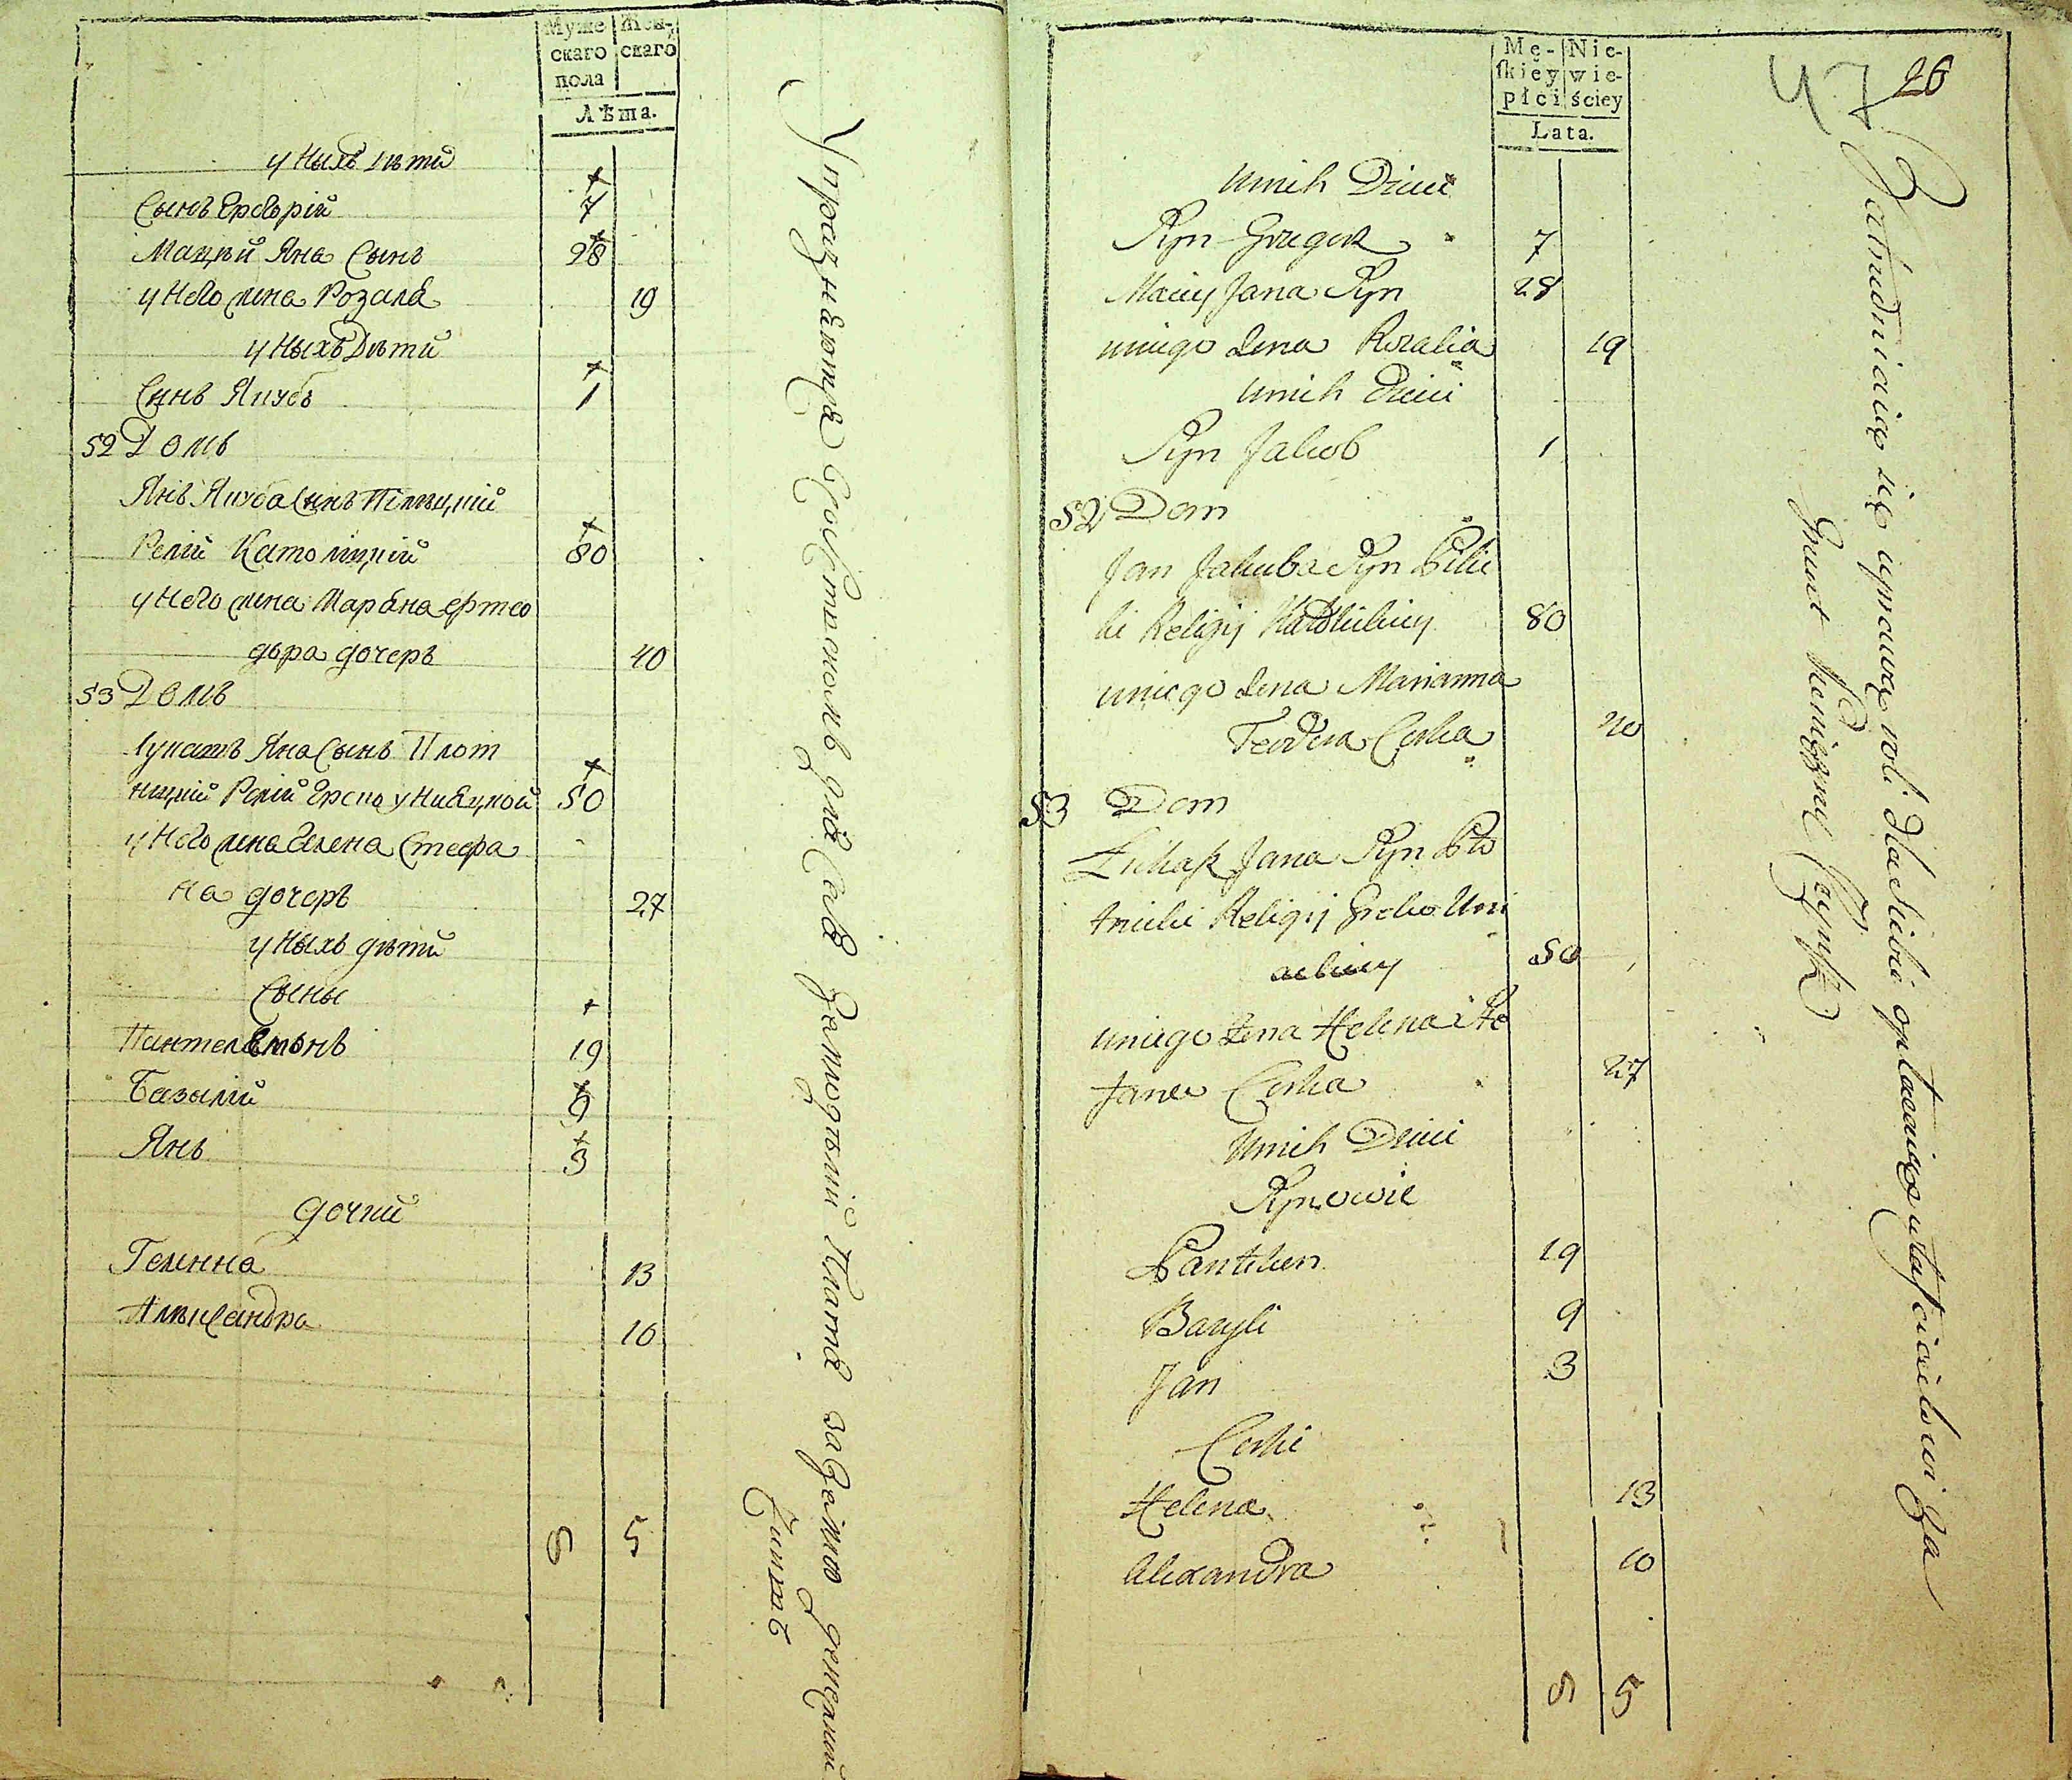 Муже
скаго
пола
Жен-
скаго
Лѣта.
у Ныхъ Дѣти
Сынъ Григорій 7
Мацѣй Яна Сынъ 28
у Него жена Розаля 19
у Ныхъ Дѣти
Сынъ Якубъ 1
52 Домъ
Янъ Якуба Сынъ
Релiи Католицкiй 80
у Него жена Марʼяна Ѳтео
дора дочерь 40
53 Домъ
Лукашъ Яна Сынъ Плот
ницкiй Релiи Греко Унiяцкой 50
у Него жена Гелена Стефа
на дочерь 27
у Ныхъ дѣти
Сыны
Пантелемонъ 19
Базылiй 9
Янъ 3
дочки
Геленна 13
Александра 10
9 5
Упражняются Господском для себя платя за
Мę-
skiey
płci
Nie-
wie-
ściey
Lata.
47 26
unich Dzieci
Syn Grzegorz 7
Maciey Jana Syn 28
uniego żena Rozalia 19
unich dzieci
Syn Jakob 1
52 Dom
Jan Jakuba Syn Bilic
ki Religij Katolickiey 80
uniego żena Marianna
Teodora Corka 40
53 Dom
Łukasz Jana Syn Pło
tnicki Religij Greko Uni
ackiey 50
uniego żena Helena Ste
fana Corka 27
unich Dzieci
Synowie
Pantelen 19
Bazyli 9
Jan 3
Corki
Helena 13
Alexandra 10
9 5
Zatrudniaią się uprawą roli dla siebie opłacaiąc właścicielowi za
Grunt Pieniężny Czynsz